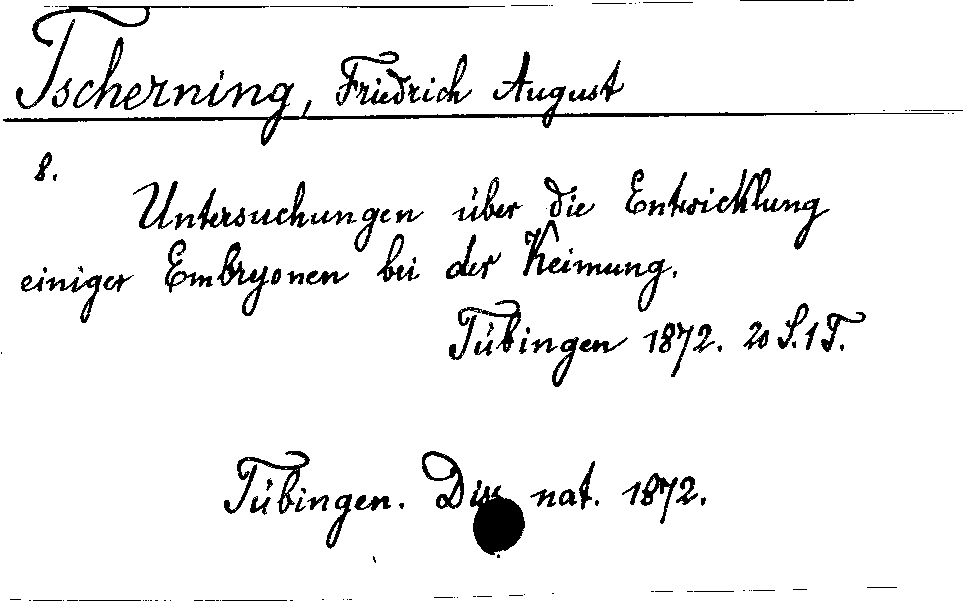 Tscherning, Friedrich August
8.
Untersuchungen über die Entwicklung
einiger Embryonen bei der Keimung.
Tübingen 1872. 20 S. 1 T.
Tübingen. Diss. nat. 1872.